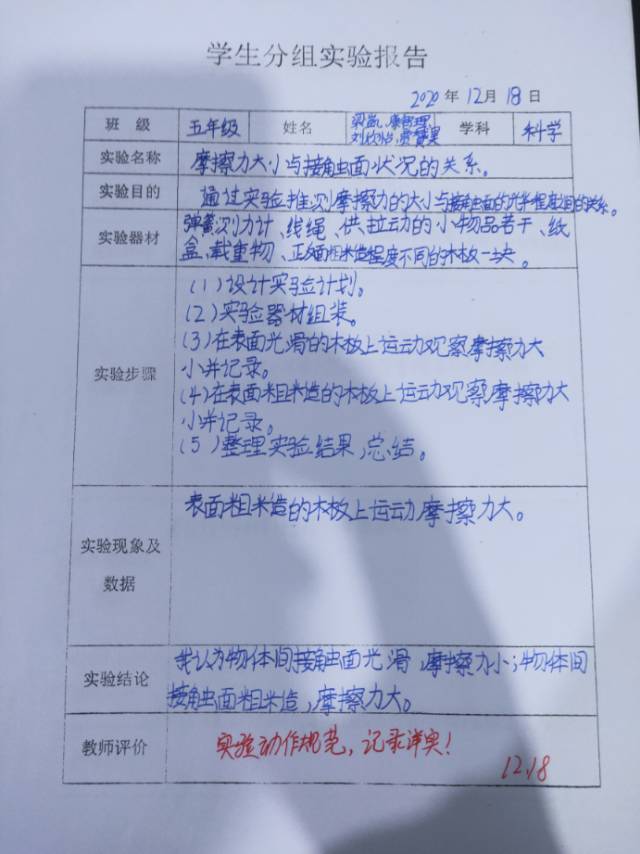 学生分组实验报告
2020 年 12月 18 日
班 级 五年级 姓名 学科 科学
实验名称 摩擦力大小与接触面状况的关系。
实验目的 通过实验推测摩擦力的大小与接触面的光滑程度之间的关系。
实验器材 弹簧测力计、线绳、供拉动的小物品若干、纸
盒、载重物、正反面粗糙程度不同的木板一块。
实验步骤
(1)设计实验计划。
(2)实验器材组装。
(3)在表面光滑的木板上运动观察摩擦力大
小并记录。
(4)在表面粗糙的木板上运动观察摩擦力大
小并记录。
(5)整理实验结果,总结。
实验现象及
数据
表面粗糙的木板上运动摩擦力大。
实验结论
我认为物体间接触面光滑,摩擦力小;物体间
接触面粗糙,摩擦力大。
教师评价 实验动作规范,记录详实!
12.18